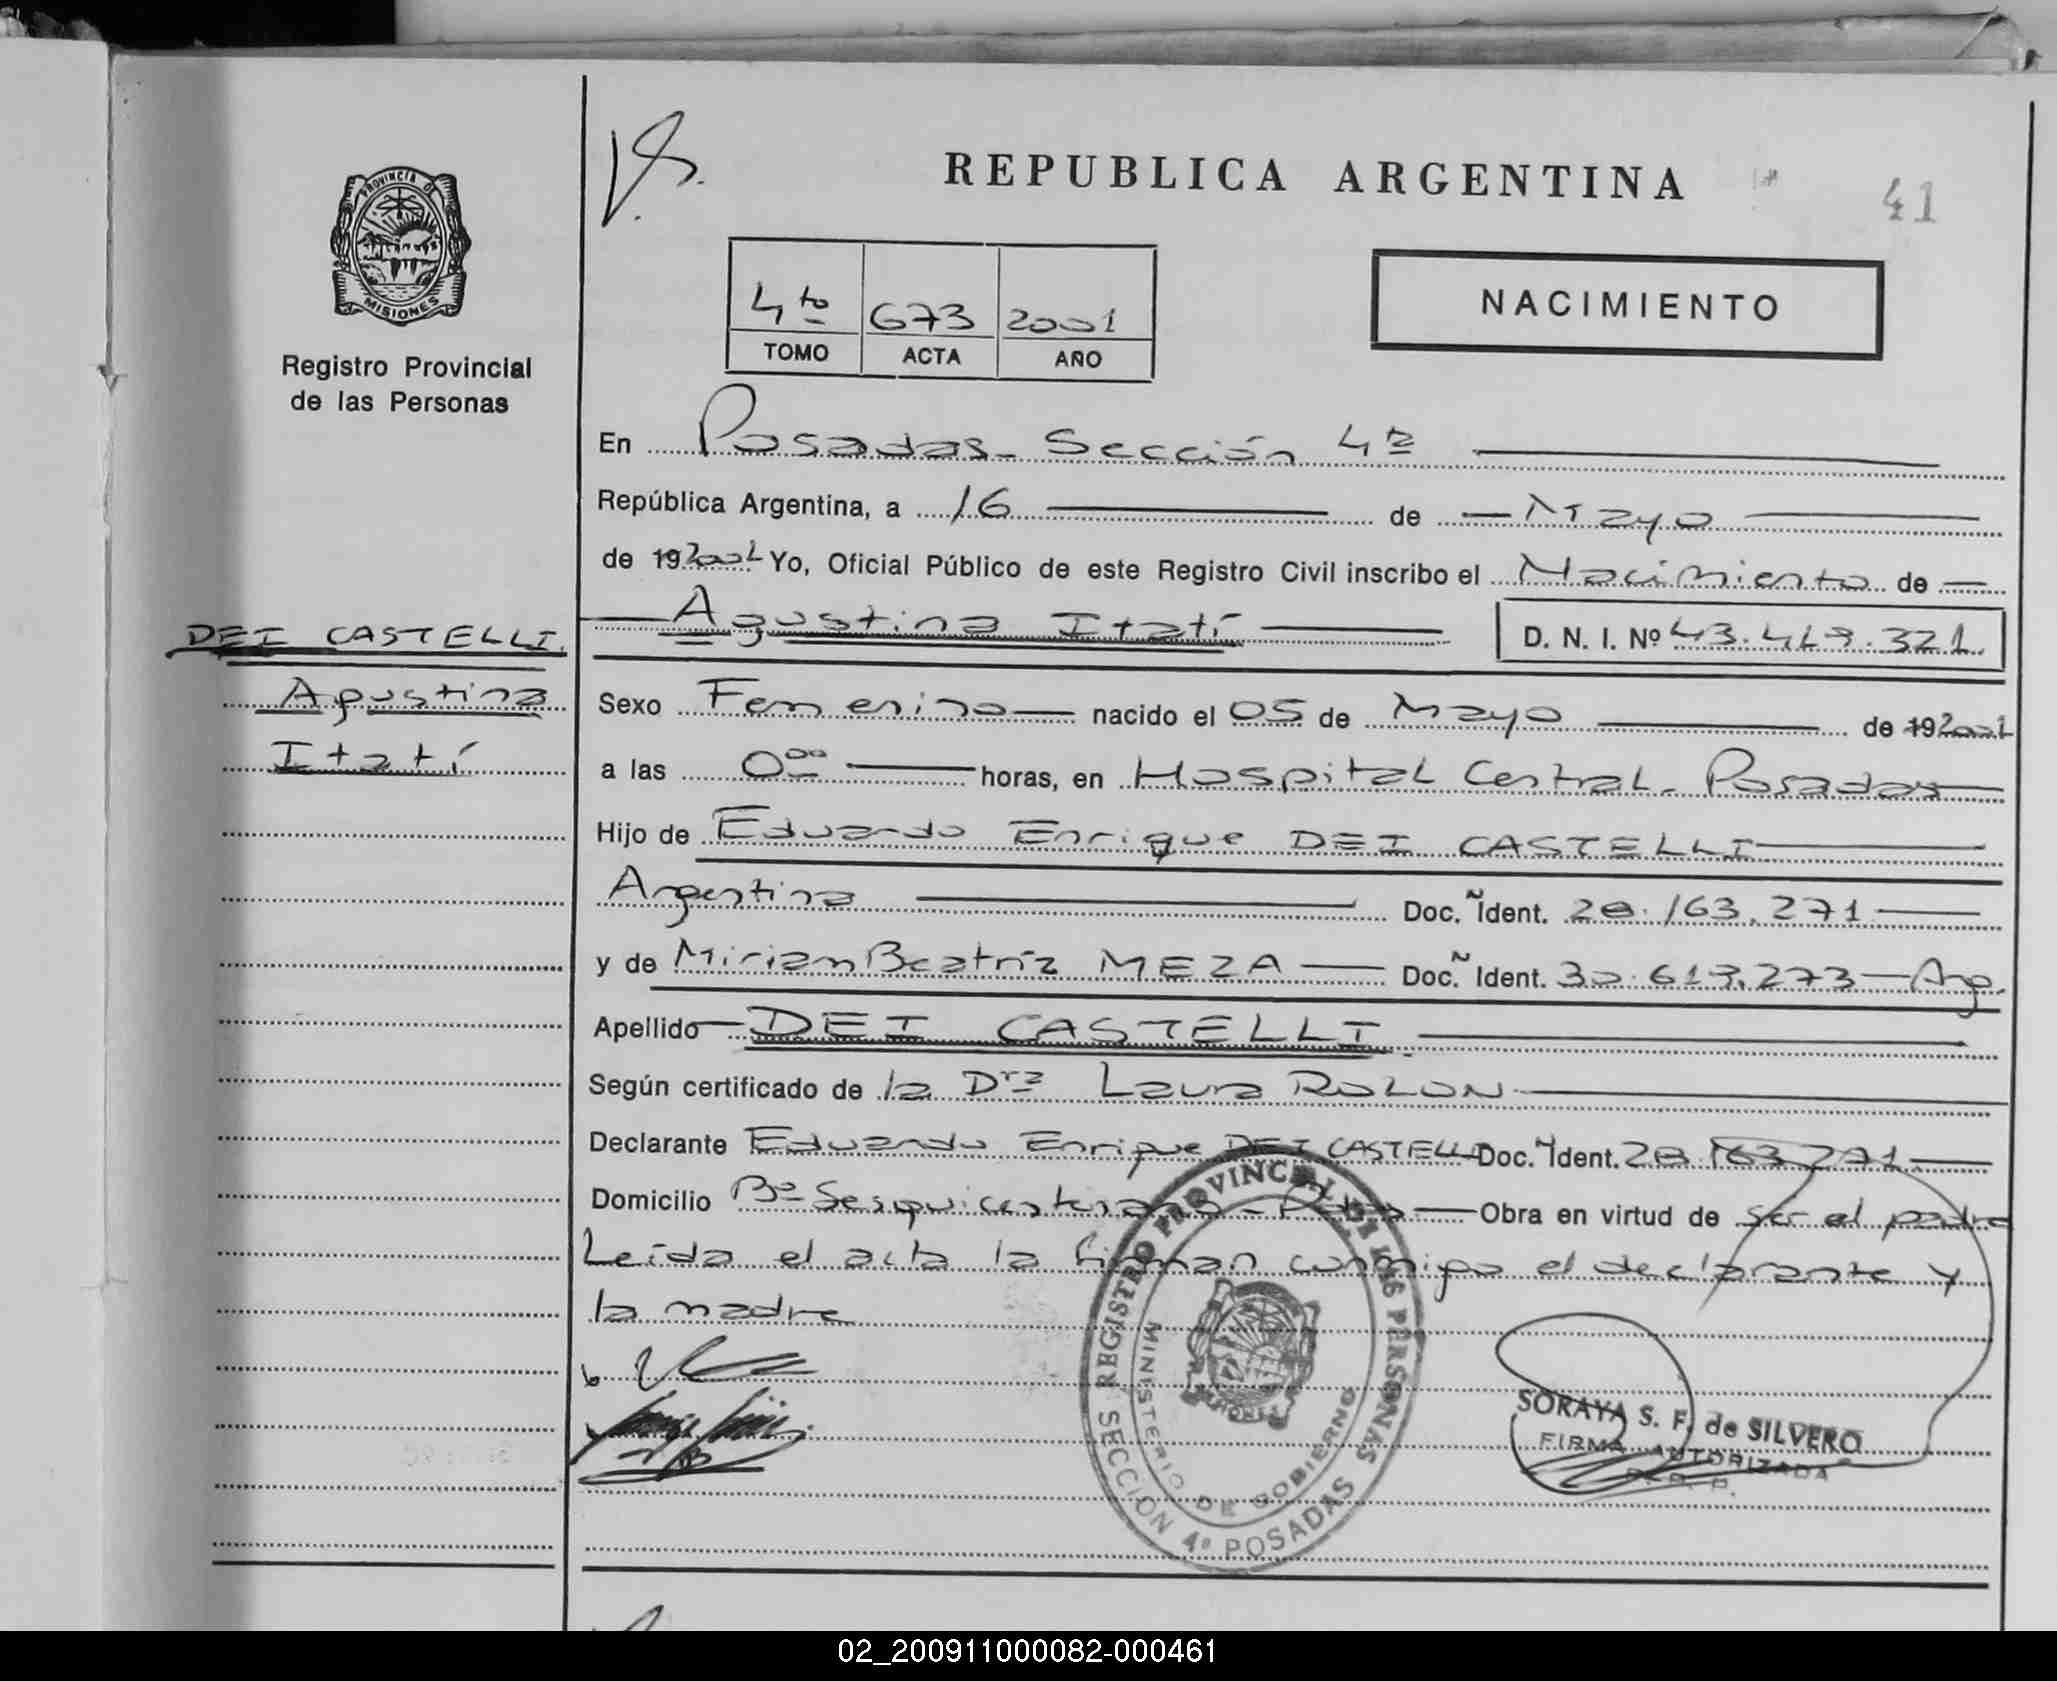 REPUBLICA ARGENTINA
41
PROVINCIA DE
MISIONES
Registro Provincial
de las Personas
4to 673 2001
TOMO ACTA AÑO
NACIMIENTO
En Posadas - Sección 4ª
República Argentina, a 16 de Mayo
de 192001 Yo, Oficial Público de este Registro Civil inscribo el Nacimiento de
Agustina Itatí D. N. I. Nº 43.419.321
DEI CASTELLI
Agustina
Itatí
Sexo Femenino nacido el 05 de Mayo de 192001
a las 0:00 horas, en Hospital Central - Posadas
Hijo de Eduardo Enrique DEI CASTELLI
Argentina Doc. Ident. 28.163.271
y de Mirian Beatríz MEZA Doc. Ident. 30.613.273 Arg.
Apellido DEI CASTELLI
Según certificado de la Dra Laura ROLON
Declarante Eduardo Enrique DEI CASTELLI Doc. Ident. 28.163.271
Domicilio Bº Sesquicentenario - Pdas Obra en virtud de ser el padre
Leída el acta la firman conmigo el declarante y
la madre
REGISTRO PROVINCIAL DE LAS PERSONAS
MINISTERIO DE GOBIERNO
SECCIÓN 4ª POSADAS
SORAYA S. F. de SILVERO
FIRMA AUTORIZADA
02_200911000082-000461